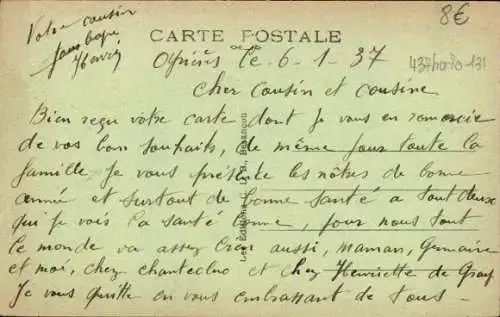 Votre cousin
8€
CARTE POSTALE
le 6-1-37
437
131
Cher Cousin et cousine
Bien reçu votre carte dont Je vous en remercie
de vos bon souhaits, de même pour toute la
famille Je vous présente les nôtres de bonne
année et surtout de bonne santé a tout deux
qui Je vois la santé bonne, pour nous tout
le monde va assez bien aussi, maman, Germaine
et moi, chez et chez Henriette de Gray
Je vous quitte en vous embrassant de tous -